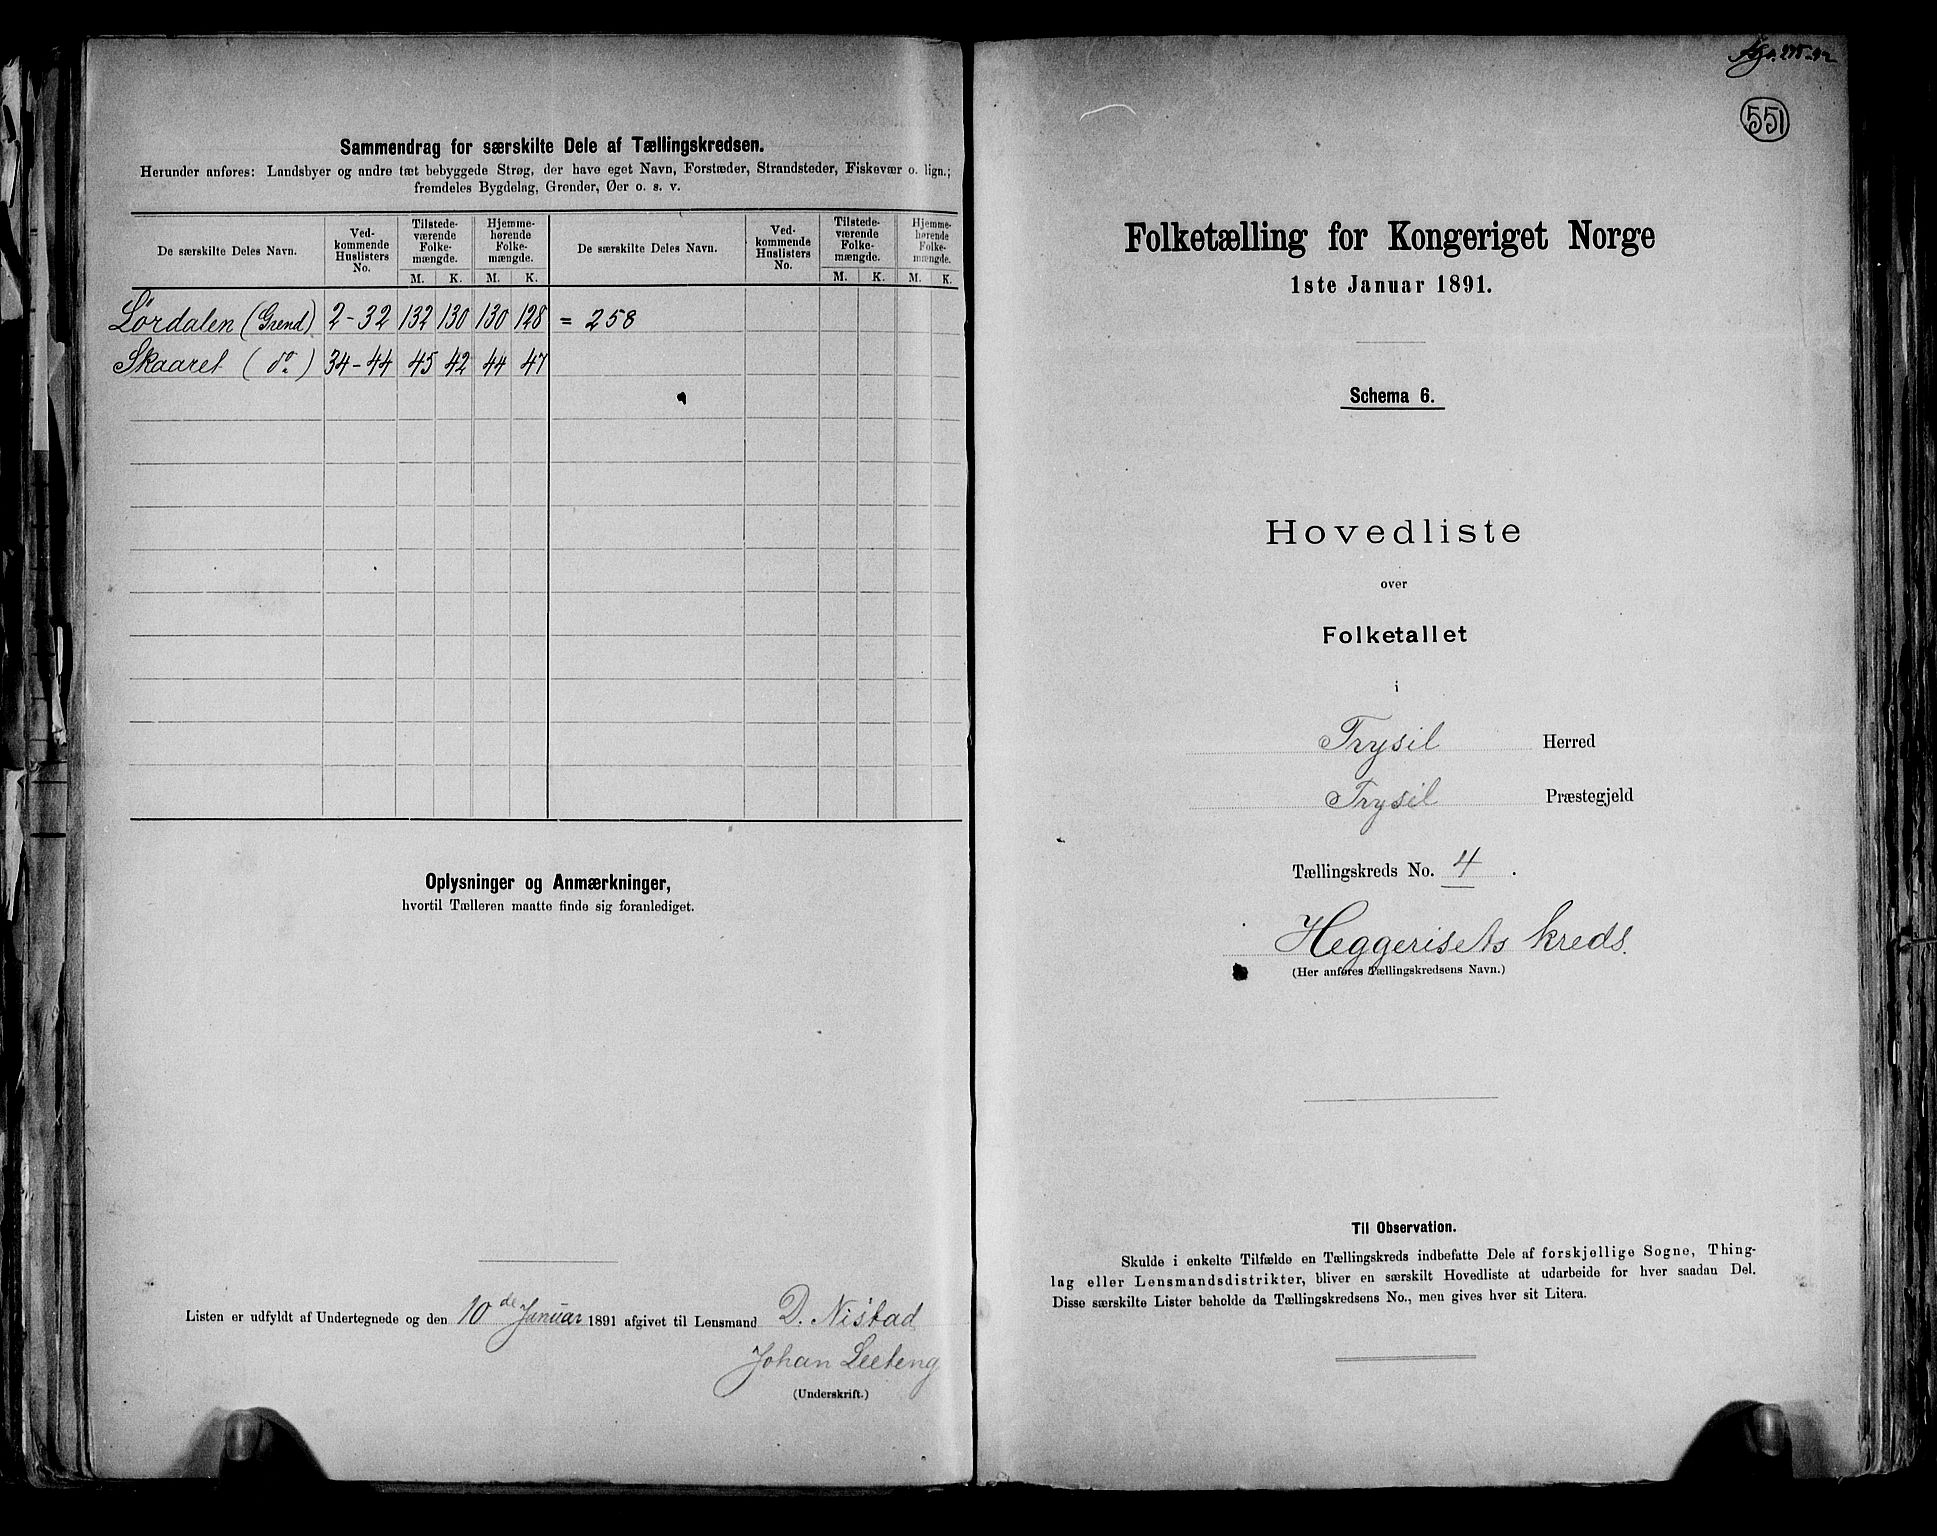 Sammendrag for særskilte Dele af Tællingskredsen.
Herunder anføres: Landsbyer og andre tæt bebyggede Strøg, der have eget Navn, Forstæder, Strandsteder, Fiskevær o. lign.;
fremdeles Bygdelag, Grender, Øer o. s. v.
De særskilte Deles Navn. Ved-kommende Huslisters No. Tilstede-værende Folke-mængde. Hjemme-hørende Folke-mængde. De særskilte Deles Navn. Ved-kommende Huslisters No. Tilstede-værende Folke-mængde. Hjemme-hørende Folke-mængde.
M. K. M. K. M. K. M. K.
Lørdalen (Grend) 2-32 132 130 130 128 = 258
Skaaret (do) 34-44 45 42 44 47
Oplysninger og Anmærkninger,
hvortil Tælleren maatte finde sig foranlediget.
Listen er udfyldt af Undertegnede og den 10de Januar 1891 afgivet til Lensmand D. Nistad
Johan Leeteng
(Underskrift.)
551
Folketælling for Kongeriget Norge
1ste Januar 1891.
Schema 6.
Hovedliste
over
Folketallet
i
Trysil Herred
Trysil Præstegjeld
Tællingskreds No. 4.
Heggerisets kreds.
(Her anføres Tællingskredsens Navn.)
Til Observation.
Skulde i enkelte Tilfælde en Tællingskreds indbefatte Dele af forskjellige Sogne, Thing-
lag eller Lensmandsdistrikter, bliver en særskilt Hovedliste at udarbeide for hver saadan Del.
Disse særskilte Lister beholde da Tællingskredsens No., men gives hver sit Litera.